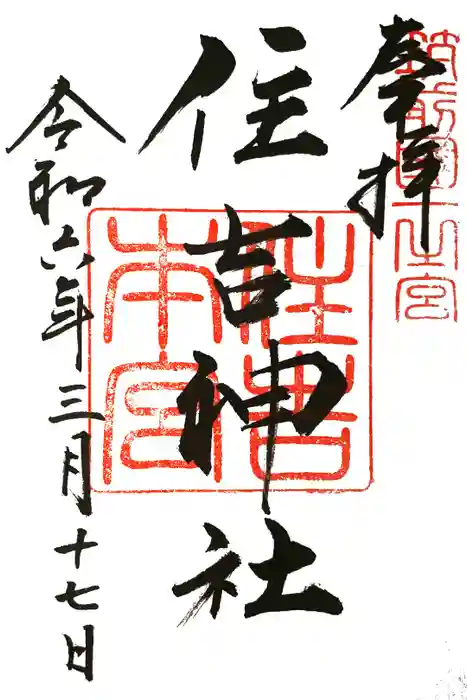 奉拝
筑前国一之宮
住吉神社
住吉本宮
令和六年三月十七日